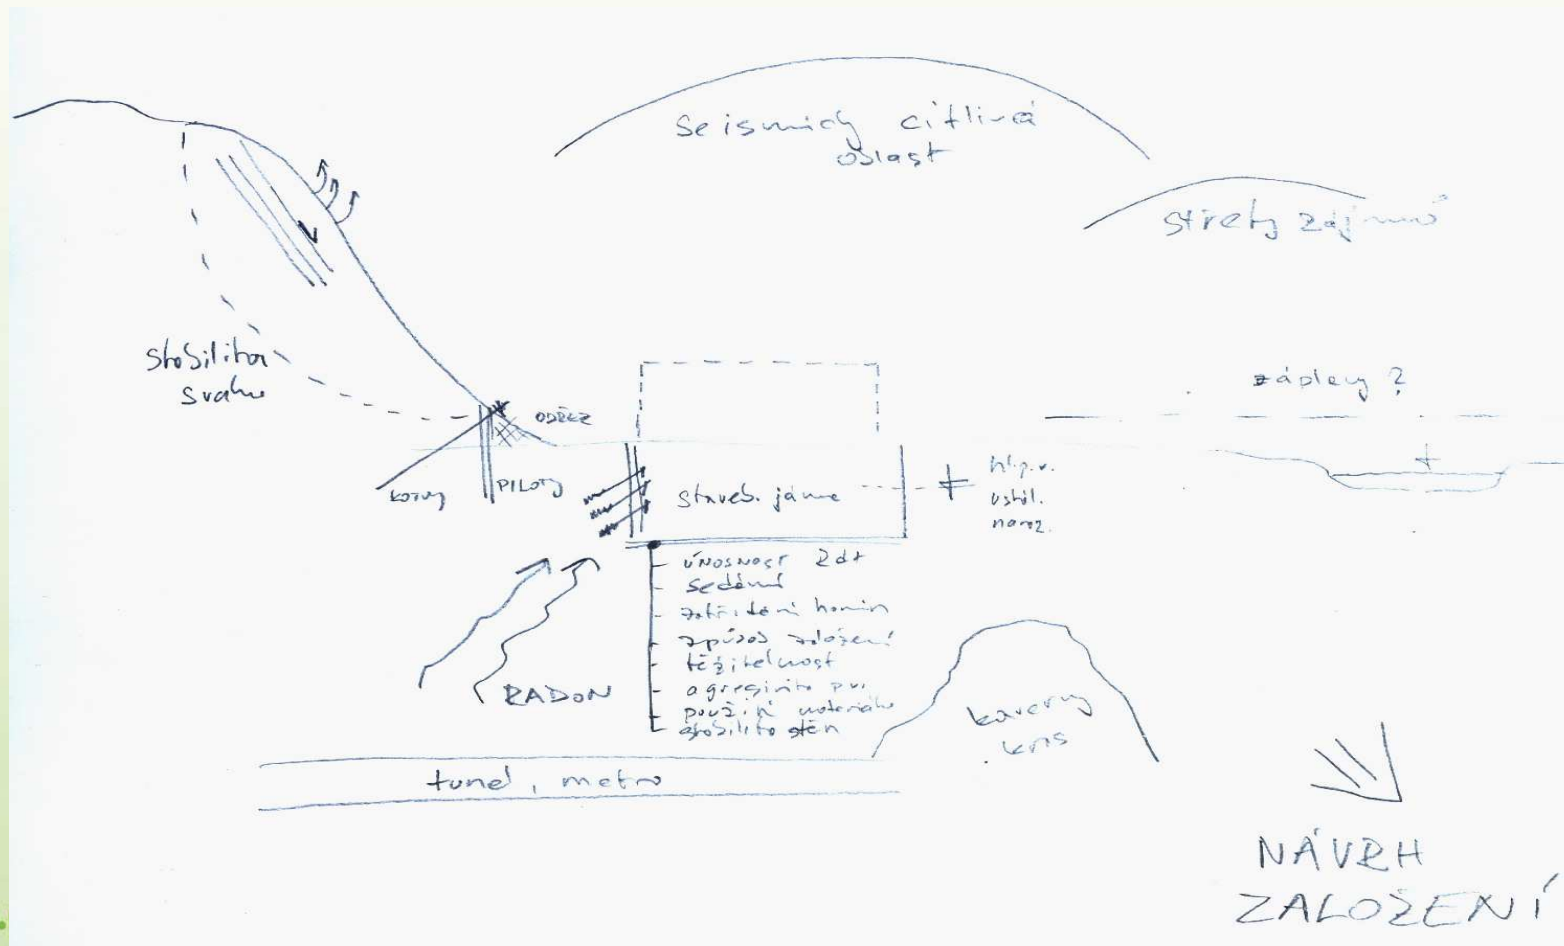 seismicky citlivá
oblast
střety zájmů
stabilita
svahu
záplavy ?
ODŘEZ
kotvy
PILOTY
staveb. jáma
hl.p.v.
ustál.
naraz.
ÚNOSNOST Zákl
sedání
zatřídění hornin
způsob založení
těžitelnost
agresivita p.v.
použití materiálu
stabilita stěn
RADON
kaverny
kras
tunel, metro
NÁVRH
ZALOŽENÍ